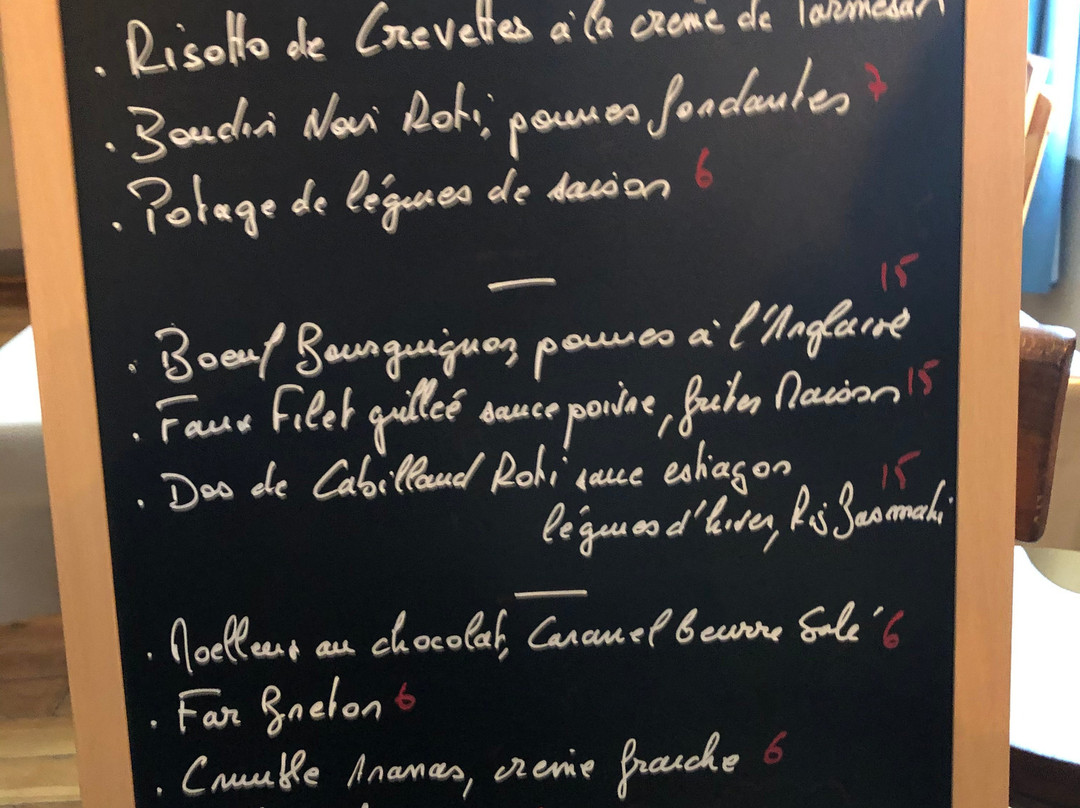 . Risotto de Crevettes à la creme de Parmesan
. Boudin Noir Roti, pommes fondantes 7
. Potage de légumes de saison 6
—
15
. Boeuf Bourguignon, pommes à l'Anglaise
. Faux Filet grilleé sauce poivre, frites Maison 15
. Dos de Cabillaud Roti sauce estragon 15
légumes d'hiver, Ris Basmati
—
. Moelleux au chocolat, Caramel beurre Salé 6
. Far Breton 6
. Crumble Ananas, creme fraiche 6